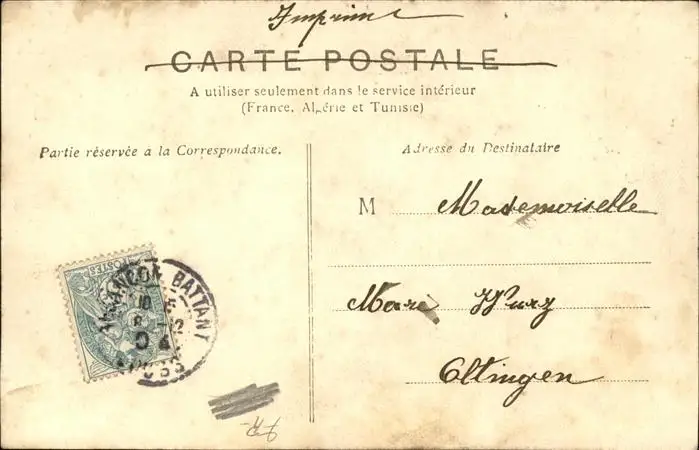 Imprimé
CARTE POSTALE
A utiliser seulement dans le service intérieur
(France, Algérie et Tunisie)
Partie réservée à la Correspondance.
Adresse du Destinataire
M Mademoiselle
Marie Wurz
Oltingen
POSTES
BATTANT
10
04
DOUBS